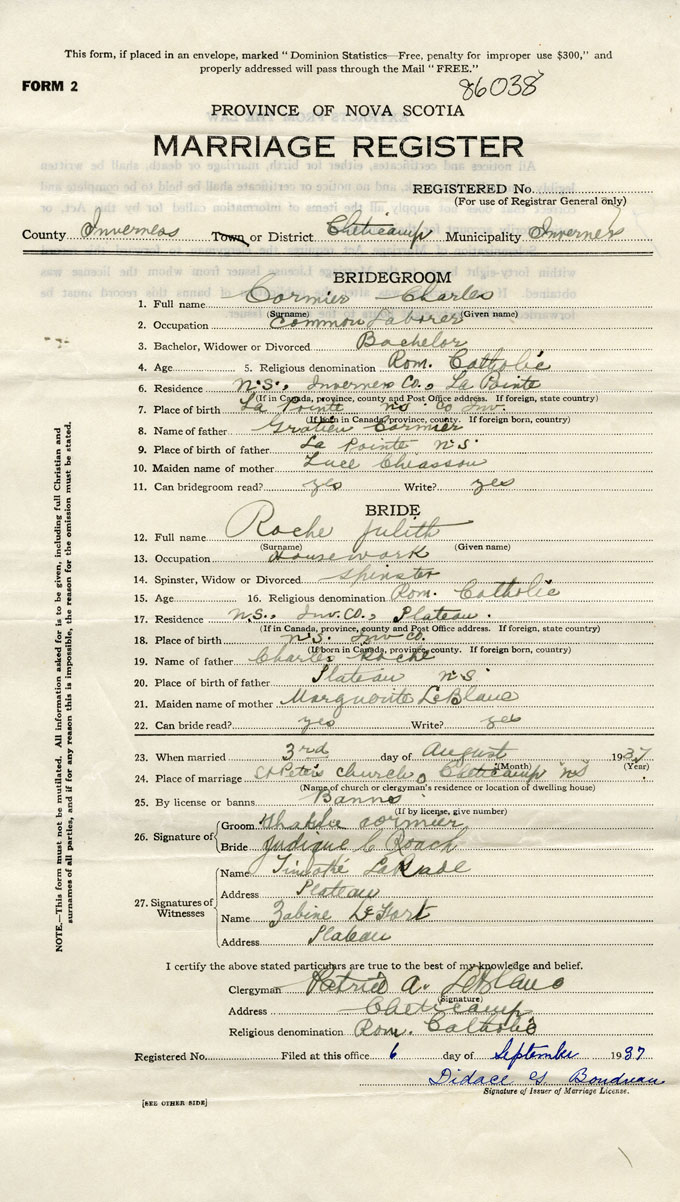 This form, if placed in an envelope, marked "Dominion Statistics—Free, penalty for improper use $300," and
properly addressed will pass through the Mail "FREE."
FORM 2
86038
PROVINCE OF NOVA SCOTIA
MARRIAGE REGISTER
REGISTERED No.
(For use of Registrar General only)
County Inverness Town or District Cheticamp Municipality Inverness
BRIDEGROOM
1. Full name Cormier Charles
(Surname) (Given name)
2. Occupation Common Laborer
3. Bachelor, Widower or Divorced Bachelor
4. Age 5. Religious denomination Rom. Catholic
6. Residence N.S., Inverness Co., La Pointe
(If in Canada, province, county and Post Office address. If foreign, state country)
7. Place of birth La Pointe N.S. Co Inv.
(If born in Canada, province, county. If foreign born, country)
8. Name of father Gratien Cormier
9. Place of birth of father La Pointe N.S.
10. Maiden name of mother Luce Chiasson
11. Can bridegroom read? yes Write? yes
BRIDE
12. Full name Roche Julith
(Surname) (Given name)
13. Occupation Housework
14. Spinster, Widow or Divorced Spinster
15. Age 16. Religious denomination Rom. Catholic
17. Residence N.S., Inv. Co., Plateau.
(If in Canada, province, county and Post Office address. If foreign, state country)
18. Place of birth N.S. Inv Co.
(If born in Canada, province, county. If foreign born, country)
19. Name of father Charles Roche
20. Place of birth of father Plateau N.S.
21. Maiden name of mother Marguerite LeBlanc
22. Can bride read? yes Write? yes
23. When married 3rd day of August 1937
(Month) (Year)
24. Place of marriage St Peter's church, Cheticamp NS
(Name of church or clergyman's residence or location of dwelling house)
25. By license or banns Banns
(If by license, give number)
26. Signature of
Groom cormier
Bride Judique C Roach
27. Signatures of Witnesses
Name Timothé LaPade
Address Plateau
Name Zabine LeFort
Address Plateau
I certify the above stated particulars are true to the best of my knowledge and belief.
Clergyman Patrick A. LeBlanc
(Signature)
Address Cheticamp
Religious denomination Rom. Catholic
Registered No. Filed at this office 6 day of September 1937
Didace G Boudreau
Signature of Issuer of Marriage License.
[SEE OTHER SIDE]
NOTE.—This form must not be mutilated. All information asked for is to be given, including full Christian and
surnames of all parties, and if for any reason this is impossible, the reason for the omission must be stated.